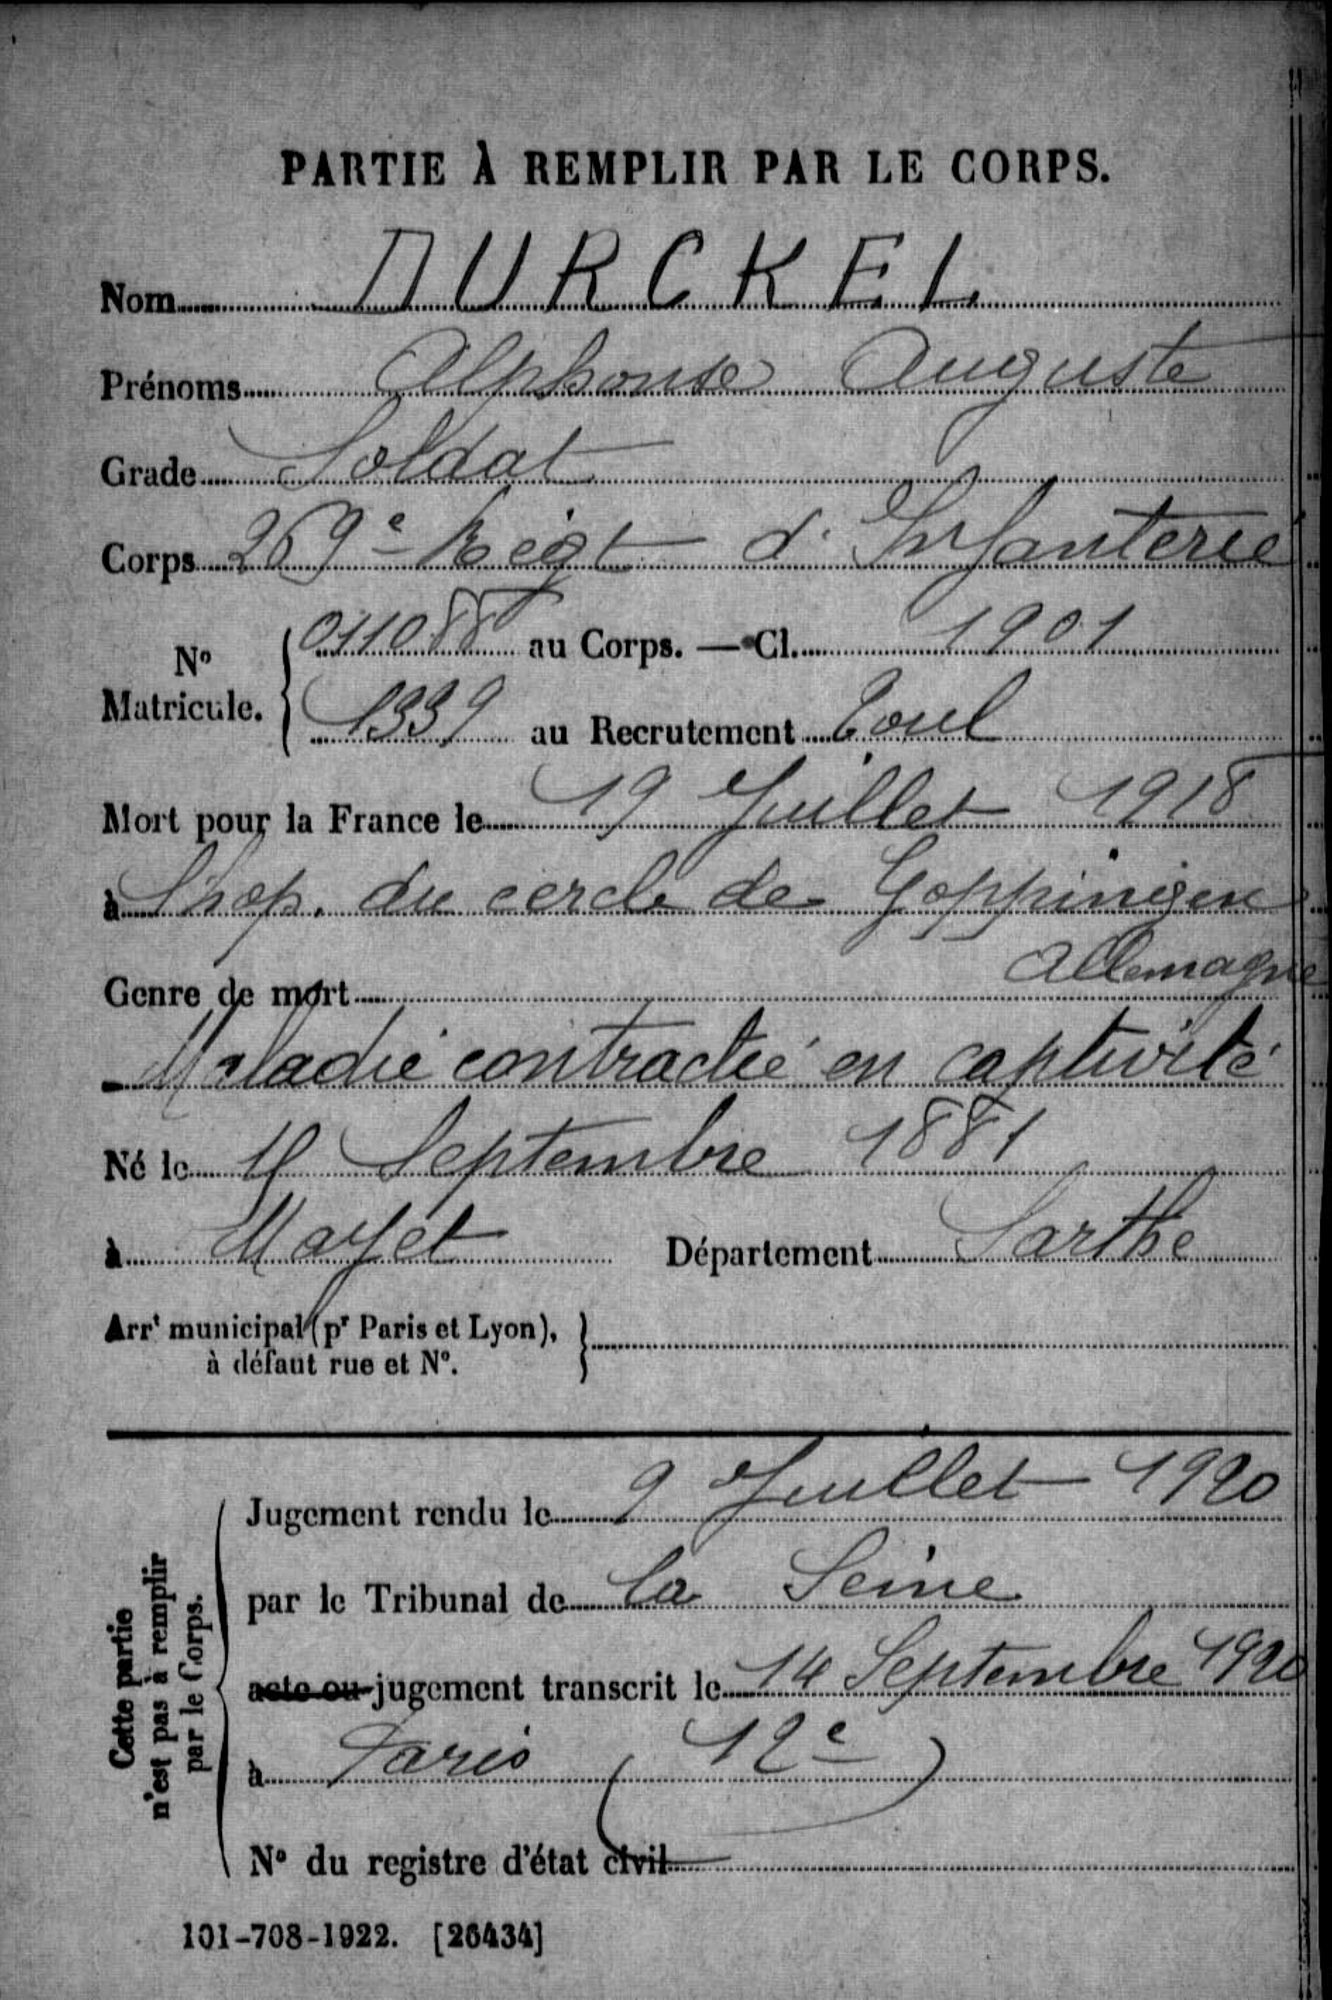 PARTIE À REMPLIR PAR LE CORPS.
Nom DURCKEL
Prénoms Alphonse Auguste
Grade Soldat
Corps 269e Régt d'Infanterie
No Matricule. { 011088 au Corps. — Cl. 1901
1339 au Recrutement Toul
Mort pour la France le 19 Juillet 1918
à l'hop. du cercle de Goppingen
Allemagne
Genre de mort
Maladie contractée en captivité
Né le Septembre 1881
à Mayet Département Sarthe
Arrt municipal (pr Paris et Lyon), }
à défaut rue et No.
Cette partie
n'est pas à remplir
par le Corps.
Jugement rendu le 9 Juillet 1920
par le Tribunal de la Seine
acte ou jugement transcrit le 14 Septembre 1920
à Paris (12e)
No du registre d'état civil
101-708-1922. [26434]